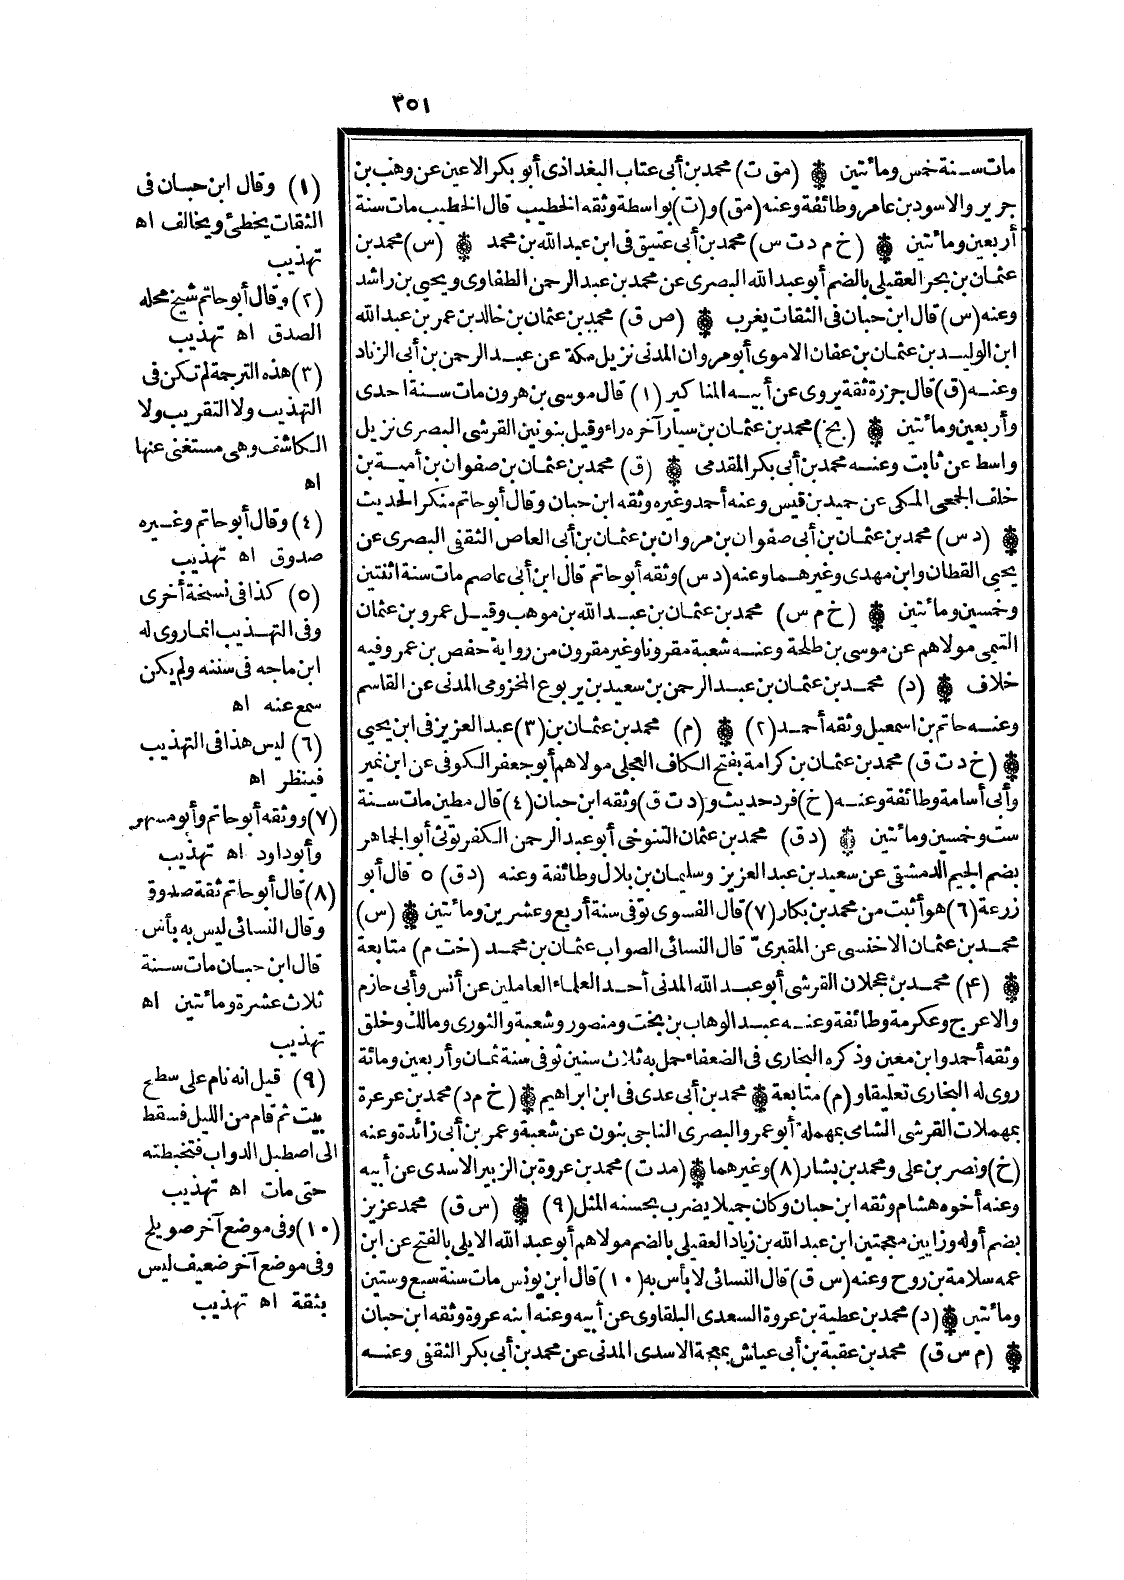 ٣٥١
مات سنة خمس ومائتين ۞ (مق ت) محمد بن أبى عتاب البغداذى أبو بكر الاعين عن وهب بن
جرير والاسود بن عامر وطائفة وعنه (مق) و(ت) بواسطة وثقه الخطيب قال الخطيب مات سنة
أربعين ومائتين ۞ (خ م د ت س) محمد بن أبى عتيق فى ابن عبد الله بن محمد ۞ (س) محمد بن
عثمان بن بحر العقيلى بالضم أبو عبد الله البصرى عن محمد بن عبد الرحمن الطفاوى ويحيى بن راشد
وعنه (س) قال ابن حبان فى الثقات يغرب ۞ (ص ق) محمد بن عثمان بن خالد بن عمر بن عبد الله
ابن الوليد بن عثمان بن عفان الاموى أبو مروان المدنى نزيل مكة عن عبد الرحمن بن أبى الزناد
وعنه (ق) قال جزرة ثقة يروى عن أبيه المناكير (١) قال موسى بن هرون مات سنة احدى
وأربعين ومائتين ۞ (بخ) محمد بن عثمان بن سيار آخره راء وقيل بنونين القرشى البصرى نزيل
واسط عن ثابت وعنه محمد بن أبى بكر المقدمى ۞ (ق) محمد بن عثمان بن صفوان بن أمية بن
خلف الجمحى المكى عن حميد بن قيس وعنه أحمد وغيره وثقه ابن حبان وقال أبو حاتم منكر الحديث
۞ (د س) محمد بن عثمان بن أبى صفوان بن مروان بن عثمان بن أبى العاص الثقفى البصرى عن
يحيى القطان وابن مهدى وغيرهما وعنه (د س) وثقه أبو حاتم قال ابن أبى عاصم مات سنة اثنتين
وخمسين ومائتين ۞ (خ م س) محمد بن عثمان بن عبد الله بن موهب وقيل عمرو بن عثمان
التيمى مولاهم عن موسى بن طلحة وعنه شعبة مقرونا وغير مقرون من رواية حفص بن عمر وفيه
خلاف ۞ (د) محمد بن عثمان بن عبد الرحمن بن سعيد بن يربوع المخزومى المدنى عن القاسم
وعنه حاتم بن اسمعيل وثقه أحمد (٢) ۞ (م) محمد بن عثمان بن (٣) عبد العزيز فى ابن يحيى
۞ (خ د ت ق) محمد بن عثمان بن كرامة بفتح الكاف العجلى مولاهم أبو جعفر الكوفى عن ابن نمير
وأبى أسامة وطائفة وعنه (خ) فرد حديث و(د ت ق) وثقه ابن حبان (٤) قال مطين مات سنة
ست وخمسين ومائتين ۞ (د ق) محمد بن عثمان التنوخى أبو عبد الرحمن الكفرتوثى أبو الجماهر
بضم الجيم الدمشقى عن سعيد بن عبد العزيز وسليمان بن بلال وطائفة وعنه (د ق) ٥ قال أبو
زرعة (٦) هو أثبت من محمد بن بكار (٧) قال الفسوى توفى سنة أربع وعشرين ومائتين ۞ (س)
محمد بن عثمان الاخنسى عن المقبرى قال النسائى الصواب عثمان بن محمد (خت م) متابعة
۞ (۴) محمد بن عجلان القرشى أبو عبد الله المدنى أحد العلماء العاملين عن أنس وأبى حازم
والاعرج وعكرمة وطائفة وعنه عبد الوهاب بن بخت ومنصور وشعبة والثورى ومالك وخلق
وثقه أحمد وابن معين وذكره البخارى فى الضعفاء حمل به ثلاث سنين توفى سنة ثمان وأربعين ومائة
روى له البخارى تعليقا و(م) متابعة ۞ محمد بن أبى عدى فى ابن ابراهيم ۞ (خ م د) محمد بن عرعرة
بمهملات القرشى الشامى بمهملة أبو عمرو البصرى الناجى بنون عن شعبة وعمر بن أبى زائدة وعنه
(خ) ونصر بن على ومحمد بن بشار (٨) وغيرهما ۞ (مد ت) محمد بن عروة بن الزبير الاسدى عن أبيه
وعنه أخوه هشام وثقه ابن حبان وكان جميلا يضرب بحسنه المثل (٩) ۞ (س ق) محمد عزيز
بضم أوله وزايين معجمتين ابن عبد الله بن زياد العقيلى بالضم مولاهم أبو عبد الله الايلى بالفتح عن ابن
عمه سلامة بن روح وعنه (س ق) قال النسائى لا بأس به (١٠) قال ابن يونس مات سنة سبع وستين
ومائتين ۞ (د) محمد بن عطية بن عروة السعدى البلقاوى عن أبيه وعنه ابنه عروة وثقه ابن حبان
۞ (م س ق) محمد بن عقبة بن أبى عياش بمعجمة الاسدى المدنى عن محمد بن أبى بكر الثقفى وعنه
(١) وقال ابن حبان فى
الثقات يخطئ ويخالف اه
تهذيب
(٢) وقال أبو حاتم شيخ محله
الصدق اه تهذيب
(٣) هذه الترجمة لم تكن فى
التهذيب ولا التقريب ولا
الكاشف وهى مستغنى عنها
اه
(٤) وقال أبو حاتم وغيره
صدوق اه تهذيب
(٥) كذا فى نسخة أخرى
وفى التهذيب انما روى له
ابن ماجه فى سننه ولم يكن
سمع عنه اه
(٦) ليس هذا فى التهذيب
فينظر اه
(٧) ووثقه أبو حاتم وأبو مسهر
وأبو داود اه تهذيب
(٨) قال أبو حاتم ثقة صدوق
وقال النسائى ليس به بأس
قال ابن حبان مات سنة
ثلاث عشرة ومائتين اه
تهذيب
(٩) قيل انه نام على سطح
بيت ثم قام من الليل فسقط
الى اصطبل الدواب فتخبطته
حتى مات اه تهذيب
(١٠) وفى موضع آخر صويلح
وفى موضع آخر ضعيف ليس
بثقة اه تهذيب